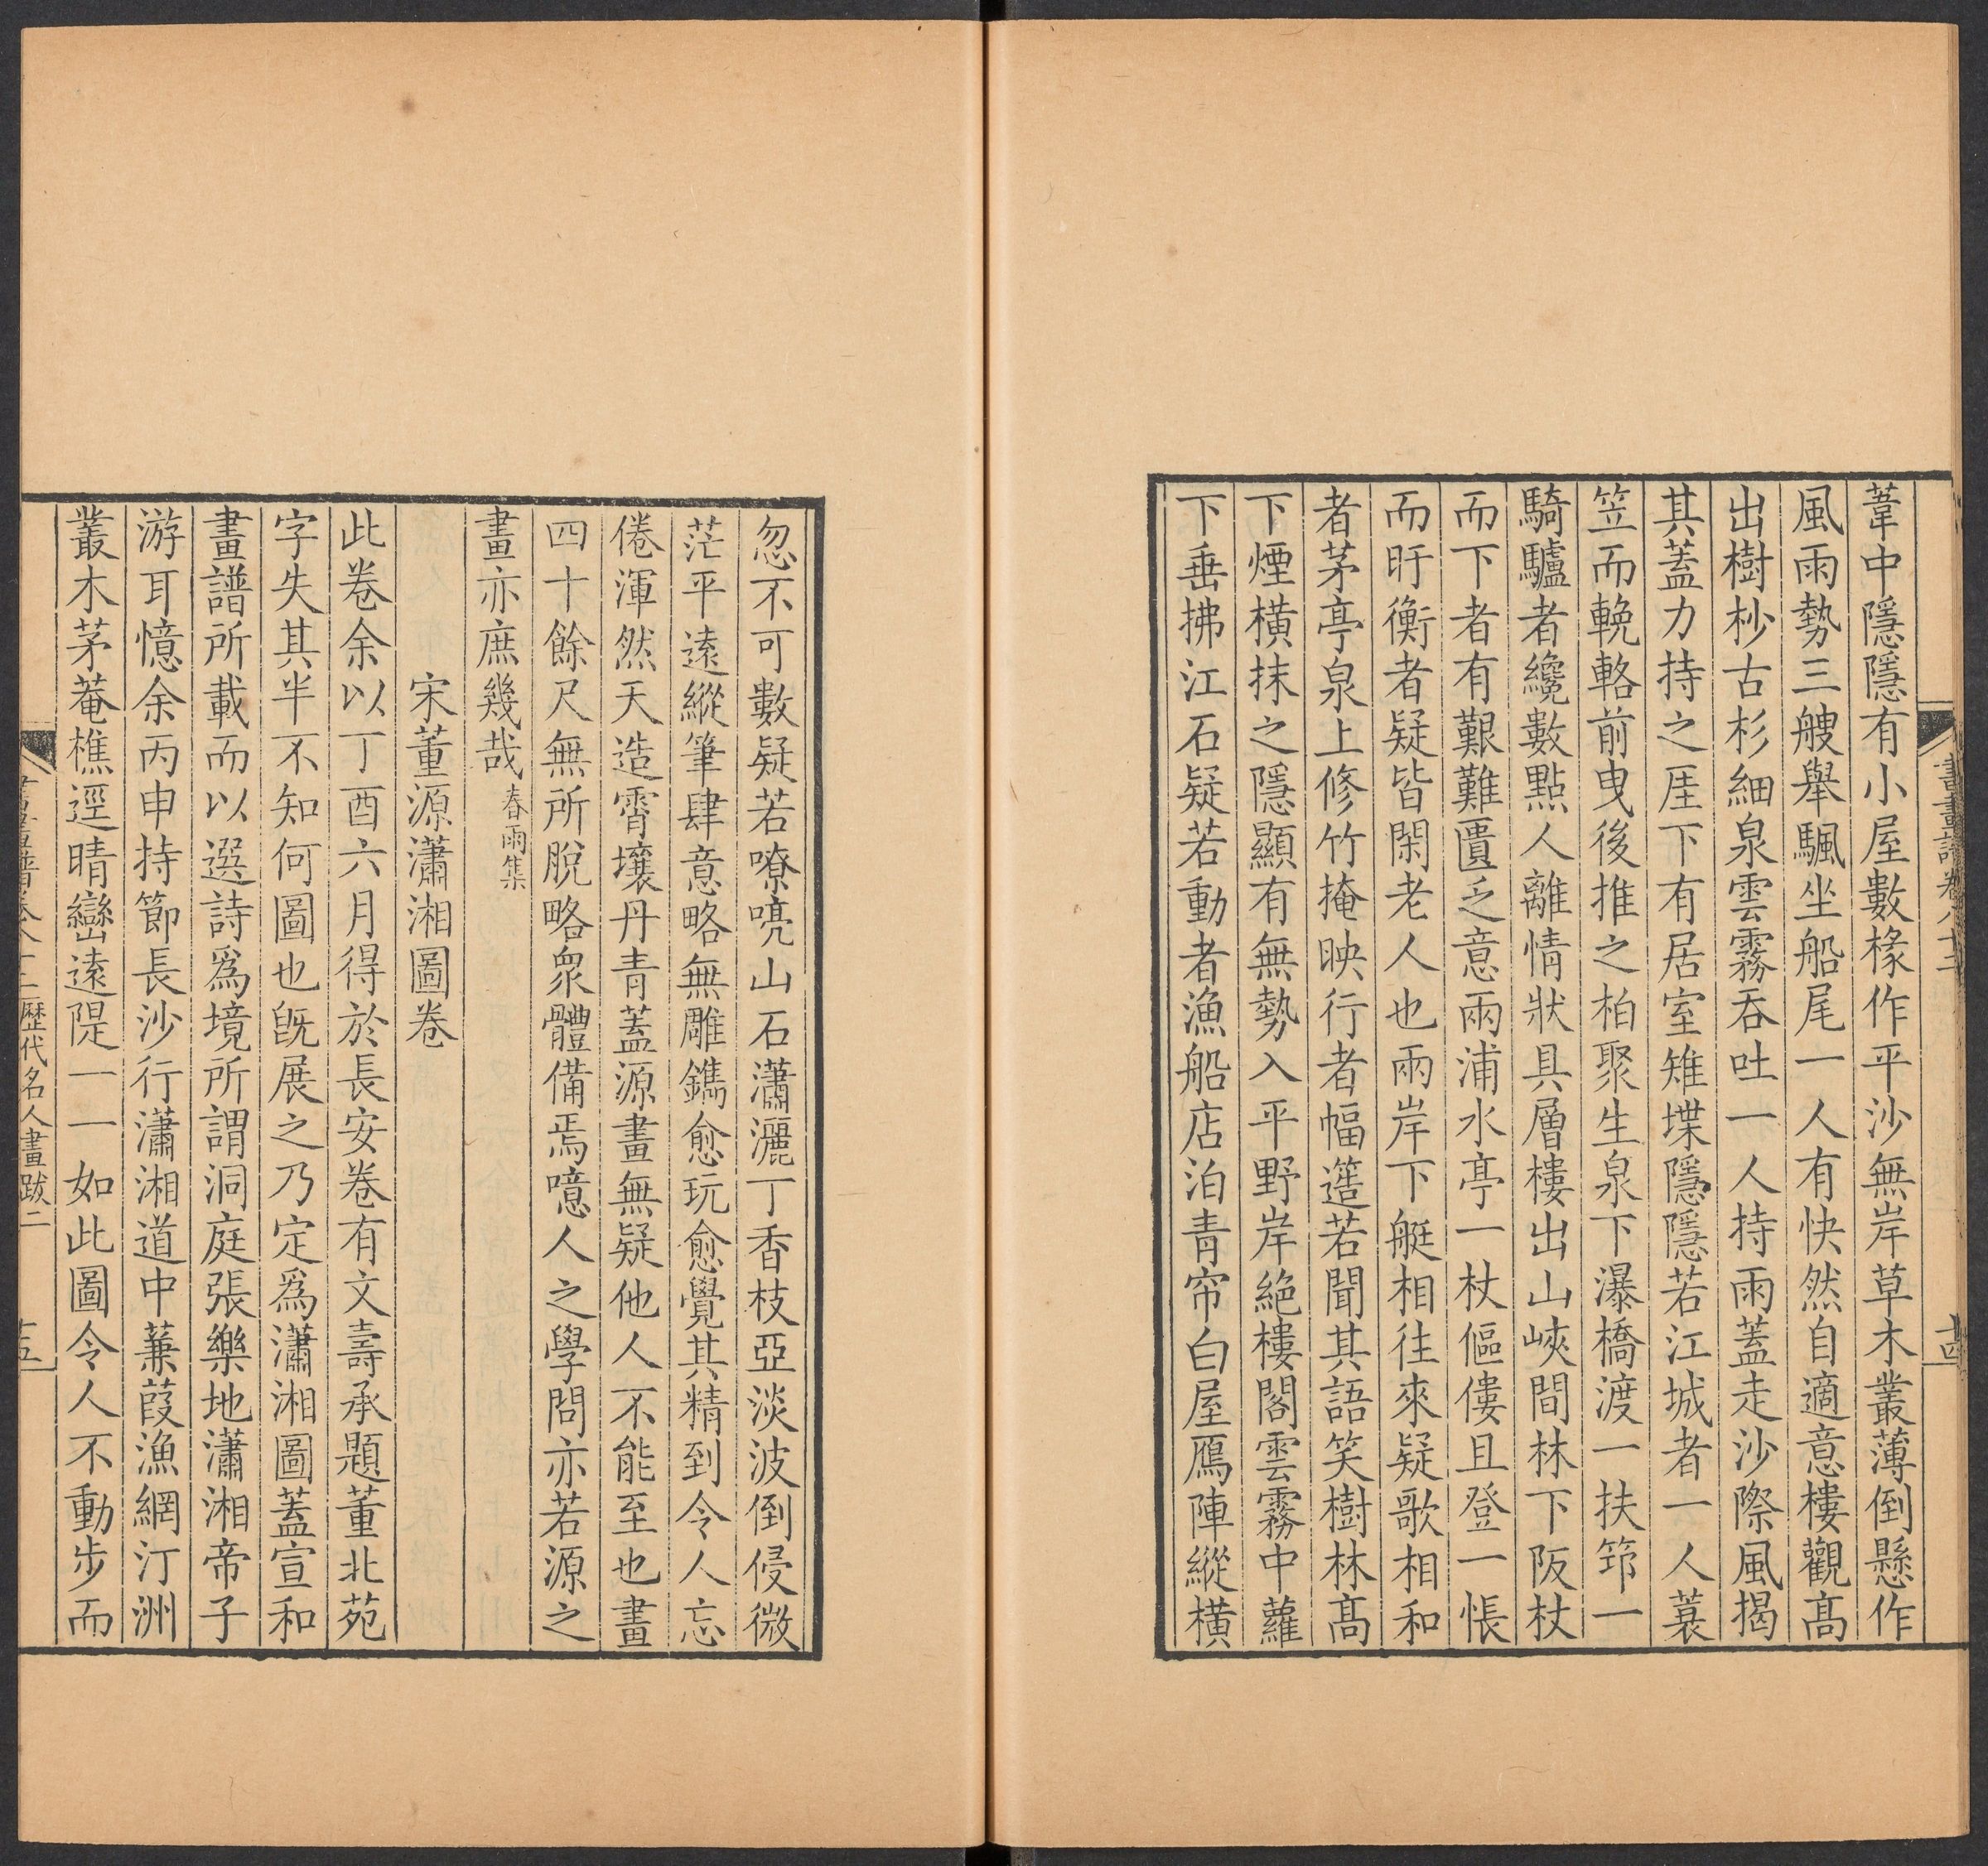 書畫譜卷八十二
十四
葦中隱隱有小屋數椽作平沙無岸草木叢薄倒懸作
風雨勢三艘舉颿坐船尾一人有快然自適意樓觀髙
出樹杪古杉細泉雲霧吞吐一人持雨蓋走沙際風揭
其蓋力持之厓下有居室雉堞隱隱若江城者一人蓑
笠而輓輅前曳後推之柏聚生泉下瀑橋渡一扶笻一
騎驢者纔數點人離情狀具層樓出山峽間林下阪杖
而下者有艱難匱乏意兩浦水亭一杖傴僂且登一悵
而盱衡者疑皆閑老人也兩岸下艇相往來疑歌相和
者茅亭泉上修竹掩映行者幅簉若聞其語笑樹林髙
下煙橫抹之隱顯有無勢入平野岸絶樓閣雲霧中蘿
下垂拂江石疑若動者漁船店泊青帘白屋鴈陣縱橫
忽不可數疑若嘹喨山石瀟灑丁香枝亞淡波倒侵微
茫平逺縱筆肆意略無雕鐫愈玩愈覺其精到令人忘
倦渾然天造霄壤丹青蓋源畫無疑他人不能至也畫
四十餘尺無所脫略衆體備焉噫人之學問亦若源之
畫亦庶幾哉春雨集
宋董源瀟湘圖卷
此卷余以丁酉六月得於長安卷有文壽承題董北苑
字失其半不知何圖也旣展之乃定爲瀟湘圖蓋宣和
畫譜所載而以選詩爲境所謂洞庭張樂地瀟湘帝子
游耳憶余丙申持節長沙行瀟湘道中蒹葭漁網汀洲
叢木茅菴樵逕晴巒逺隄一一如此圖令人不動步而
歷代名人畫跋二
十五